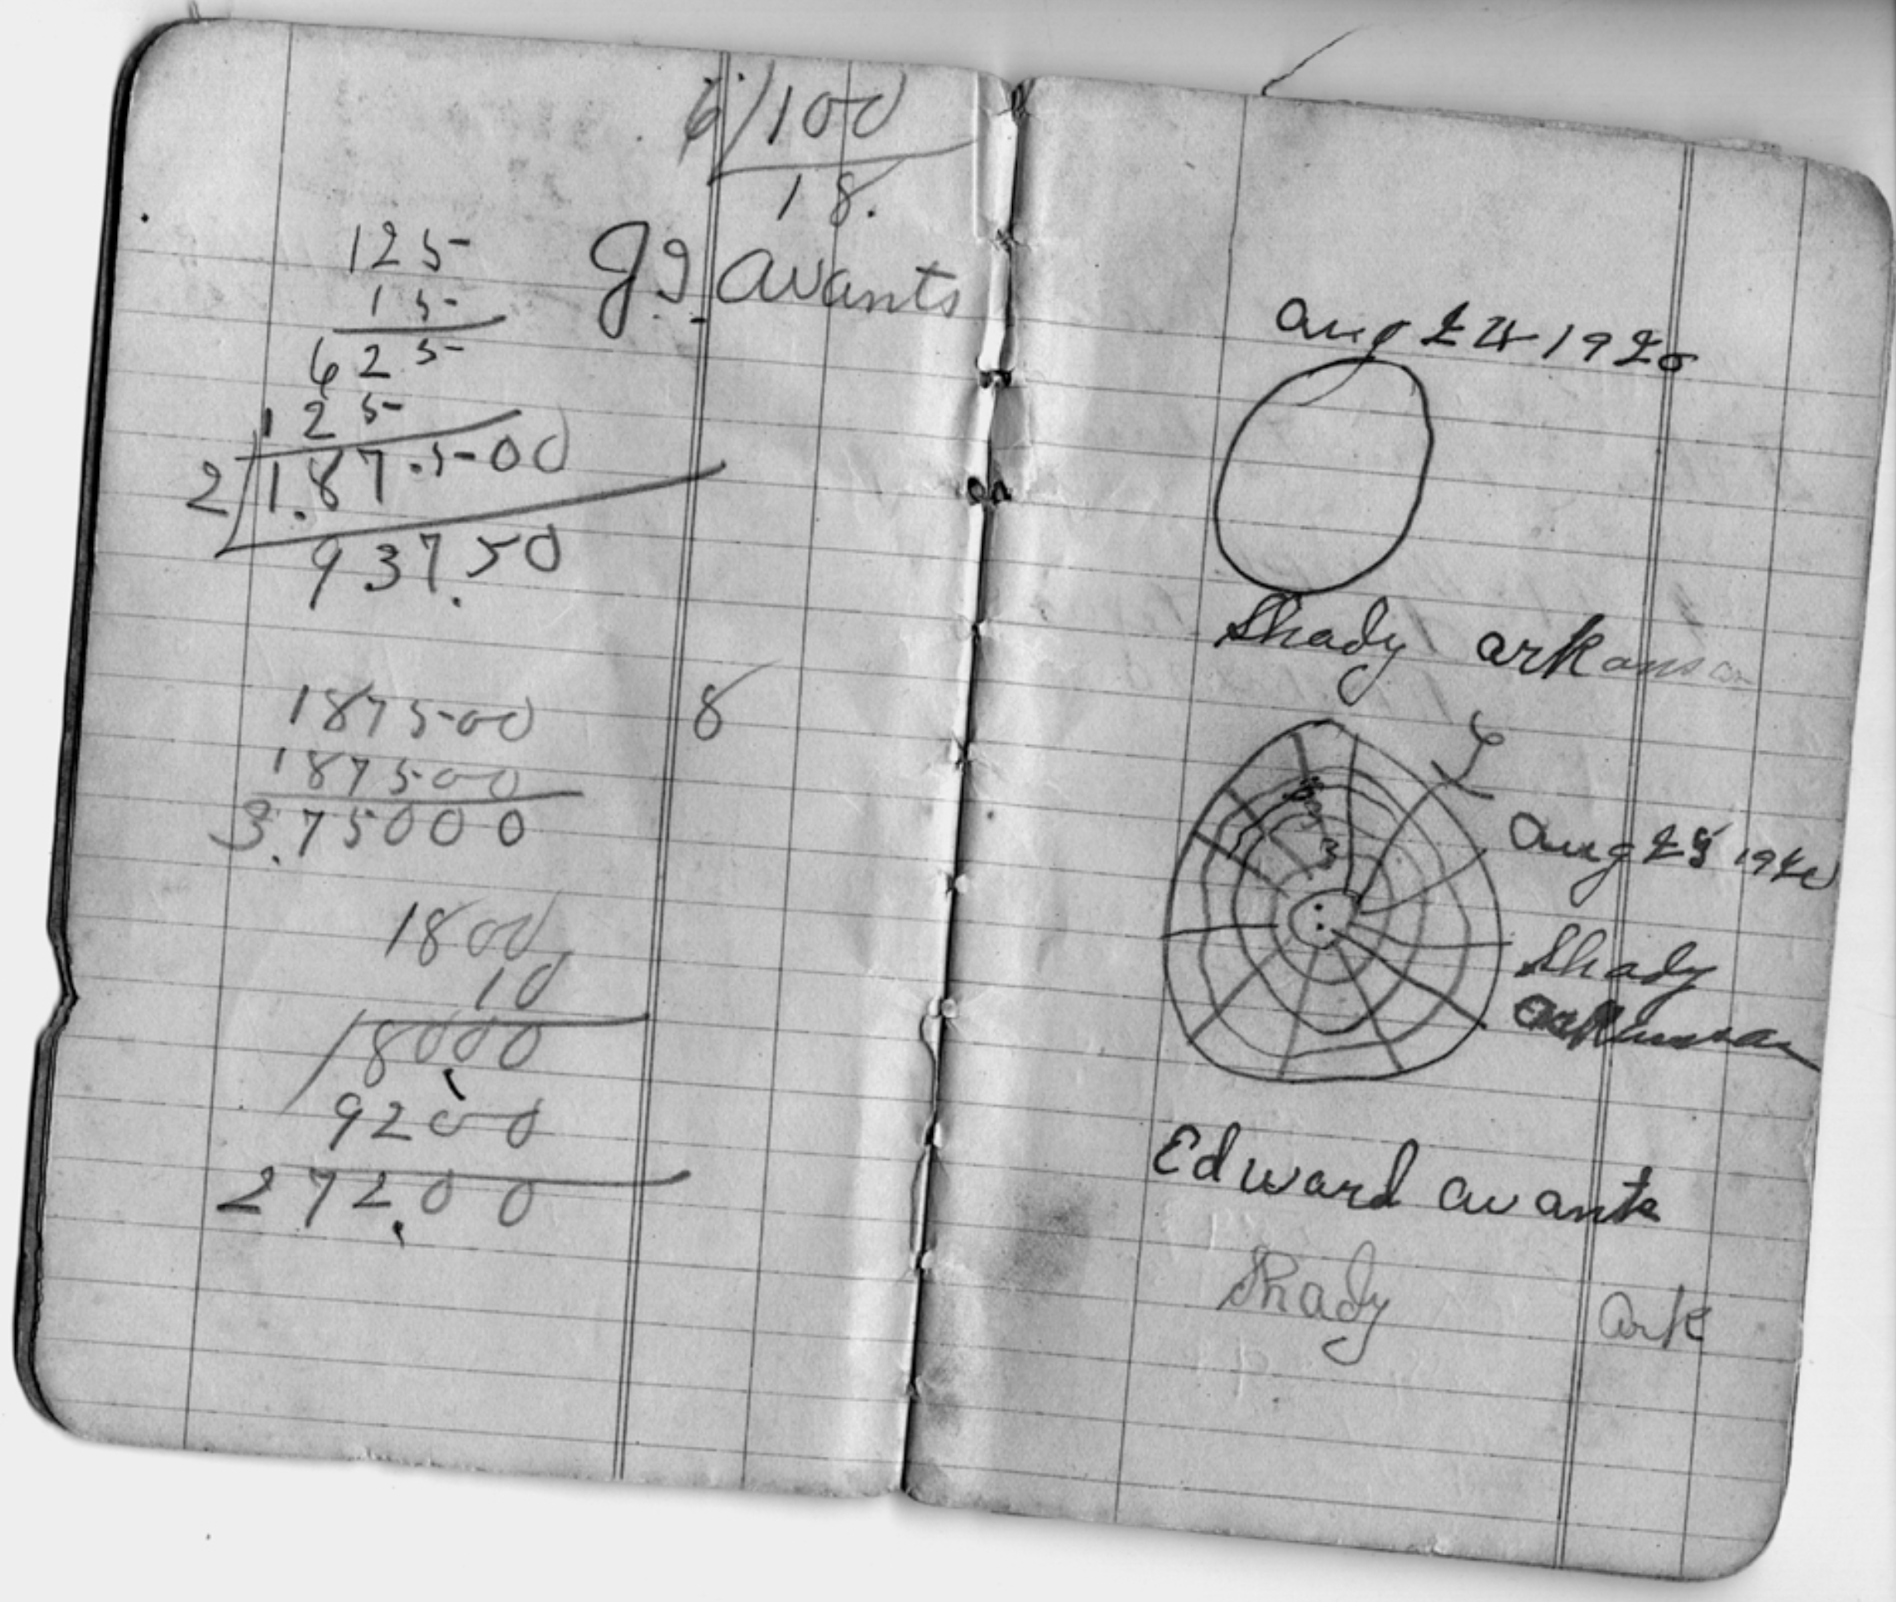 6/100
18.
125
15
625
125
2/1.87.500
937.50
JJ. Avants
187500
187500
3.75000
8
1800
10
18000
9200
272.00
Aug 24 1920
Shady Arkansas
Aug 25 1920
Shady
Arkansas
Edward Avants
Shady Ark